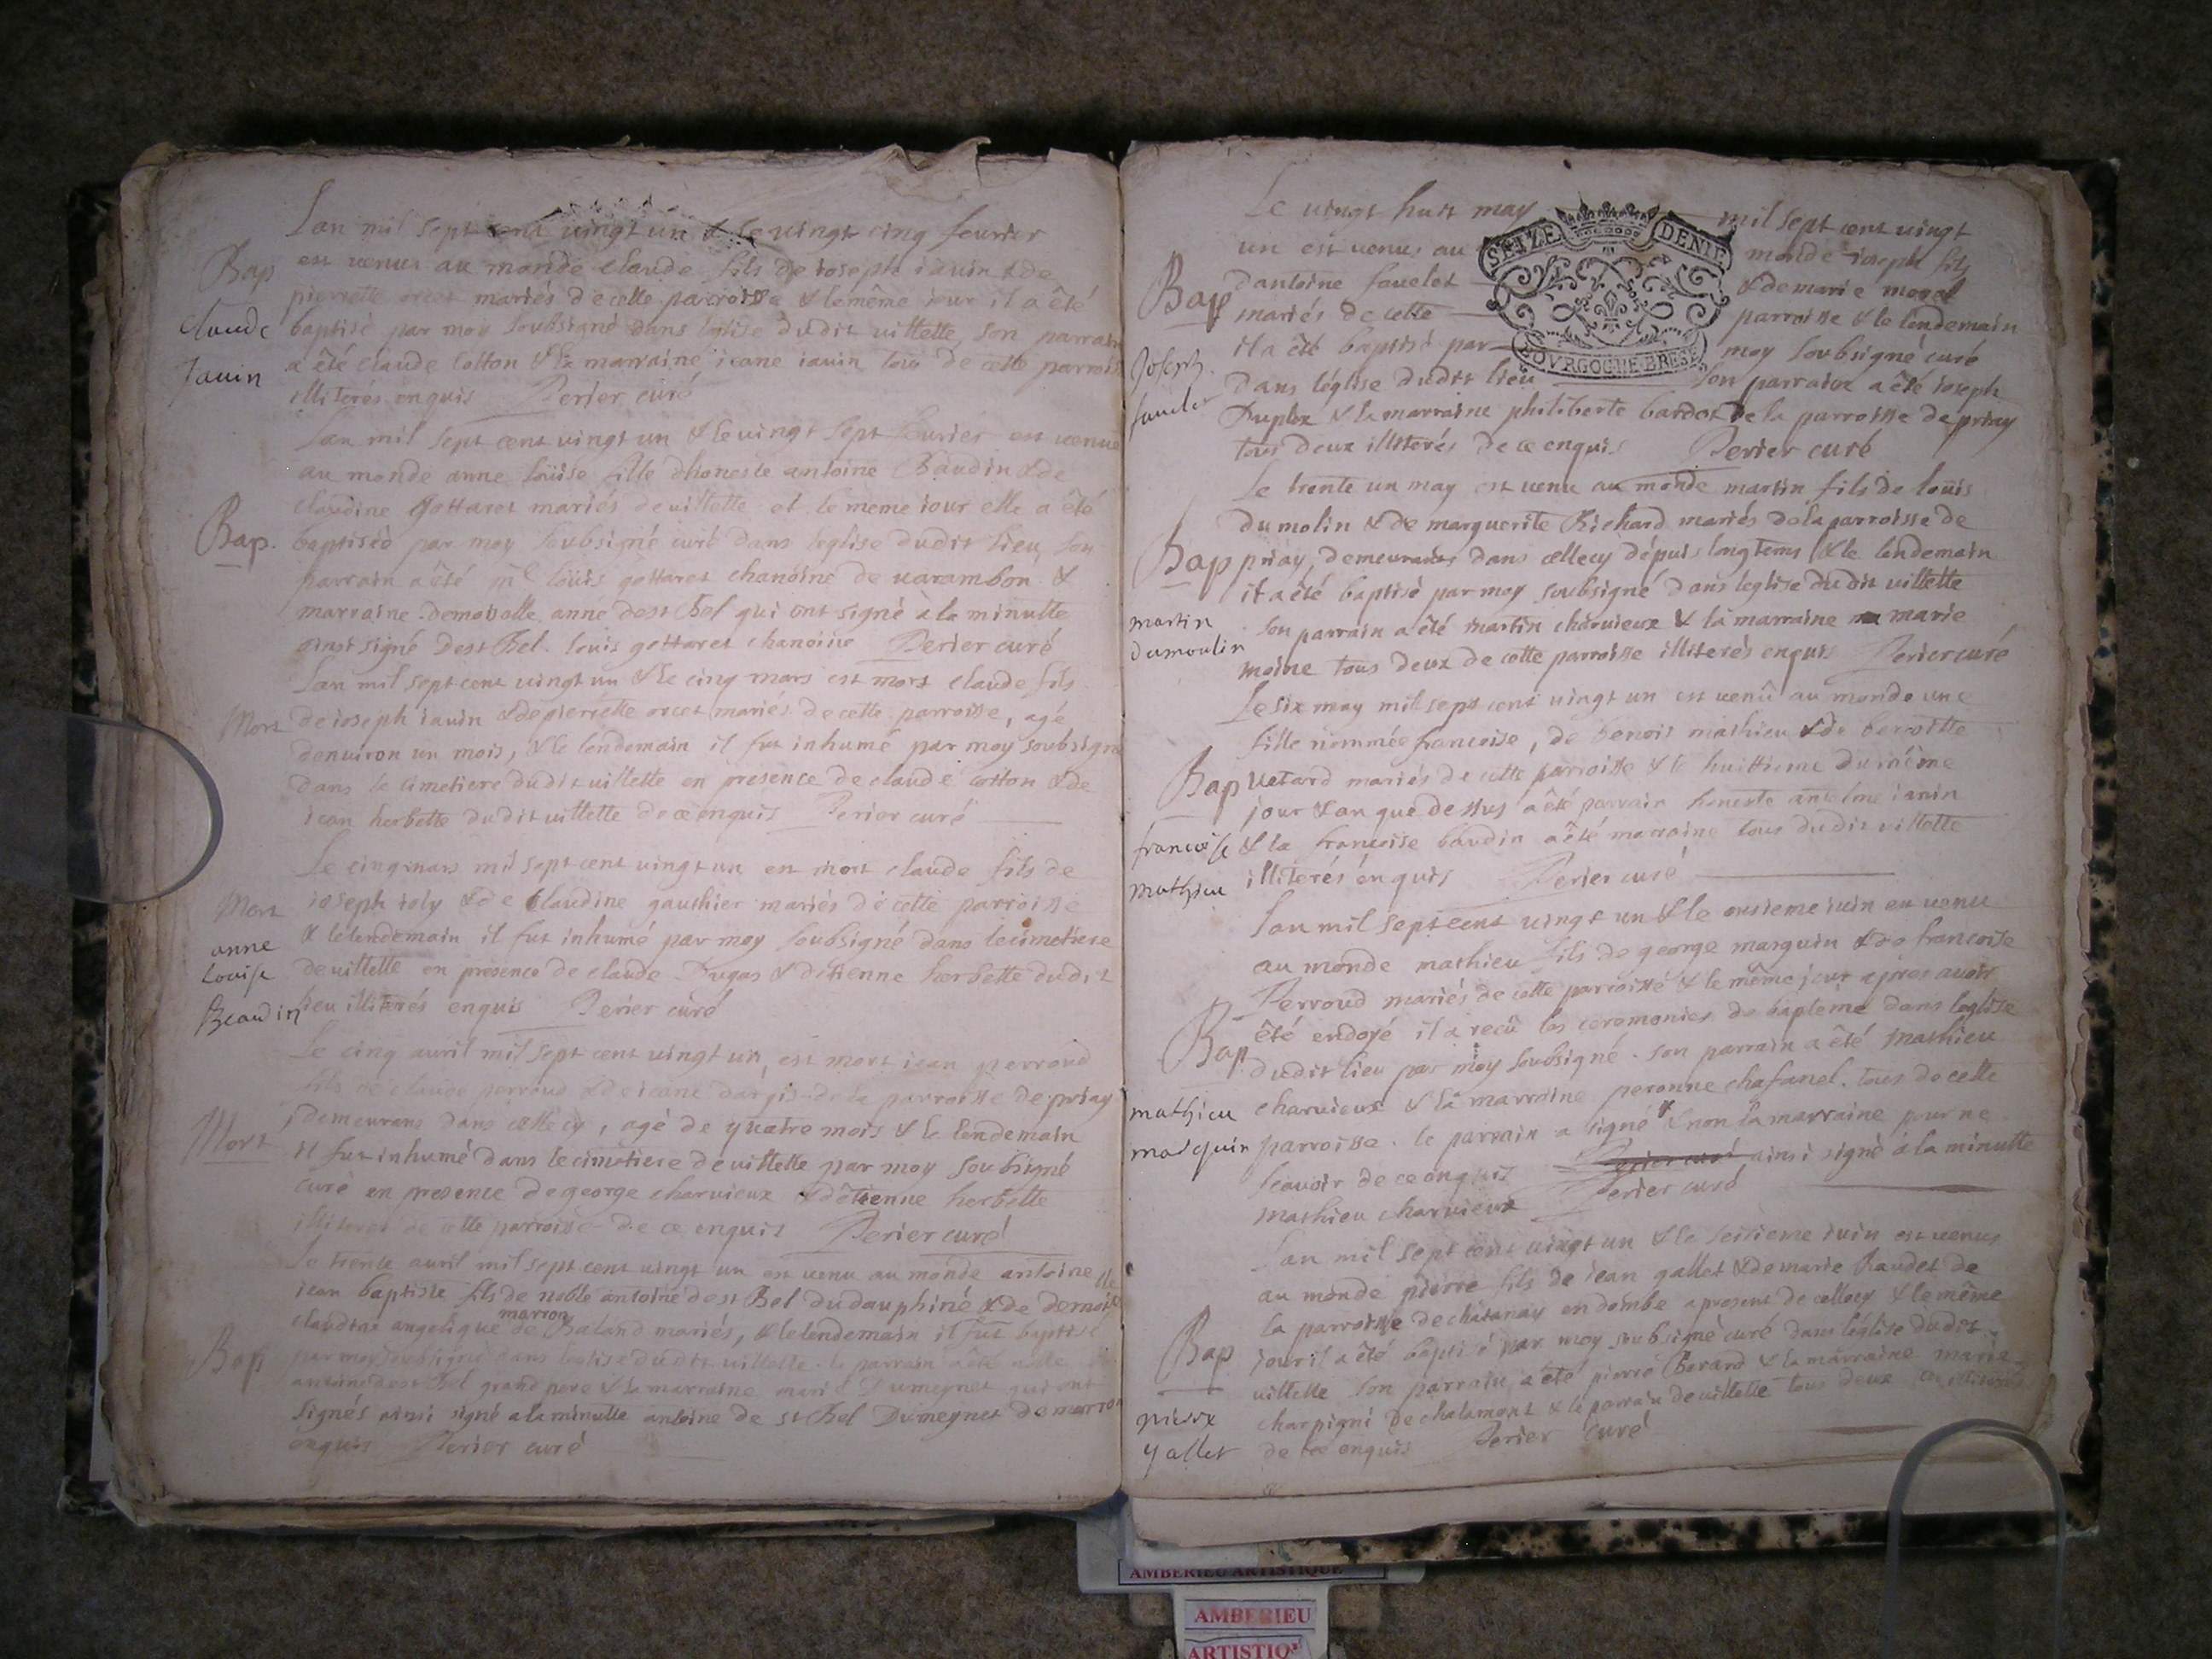 Lan mil sept cent vingt un & le vingt cinq feurier
Bap
est venus au monde claude fils de ioseph iauin & de
pierrette orcet mariés de cette parroisse & le même iour il a êté
claude
baptisé par moy soubsigné dans leglise dudit villette, son parrain
Jauin
a êté claude cotton & la marraine ieane iauin tous de cette parroiss
illiterés enquis Perier curé
Lan mil sept cent vingt un & le vingt sept feurier est venue
au monde anne loüise fille dhoneste antoine Baudin & de
claudine gottaret mariés de villette et le meme iour elle a êté
Bap.
baptiséé par moy soubsigné curé dans leglise dudit lieu, son
parrain a êté loüis gottaret chanoine de varambon &
marraine demoiselle anne dest Bel qui ont signé a la minutte
ainsi signé dest Bel. louis gottaret chanoine Perier curé
Lan mil sept cent vingt un & le cinq mars est mort claude fils
Mort
de ioseph iauin & de pierrette orcet mariés de cette parroisse, agé
denuiron un mois, & le lendemain il fut inhumé par moy soubsigné
dans le cimetiere dudit villette en presence de claude cotton & de
iean herbette dudit villette de ce enquis Perier curé
Le cinq mars mil sept cent vingt un est mort claude fils de
Mort
ioseph ioly & de Claudine gauthier mariés de cette parroisse
anne
louise
Beaudin
& le lendemain il fut inhumé par moy soubsigné dans le cimetiere
de villette en presence de claude Dugas & detienne herbette dudit
lieu illiterés enquis Perier curé
Le cinq auril mil sept cent vingt un, est mort iean perroud
fils de claude perroud & de ieane dargis de la parroisse de priay
Mort
demeurans dans cellecy, agé de quatre mois & le lendemain
il fut inhumé dans le cimetiere de villette par moy soubsigné
curé en presence de george charuieux & détienne herbette
illiterés de cette parroisse de ce enquis Perier curé
Le trente auril mil sept cent vingt un est venu au monde antoine
iean baptiste fils de noble antoine dest Bel du dauphiné & de demoiselle
marron
claudine angelique de Baland mariés, & le lendemain il fut baptisé
Bap
par moy soubsigné dans leglise dudit villette le parrain a êté noble
antoine dest Bel grand pere & la marraine marie Dumeynet qui ont
signés ainsi signé a la minutte antoine de st Bel Dumeynet de marron
enquis Perier curé
Le vingt huit may mil sept cent vingt
SEIZE DENIE
BOVRGOGNE BRESE
un est venus au monde ioseph fils
Bap
dantoine fauelet & de marie morel
mariés de cette parroisse & le lendemain
Joseph
fauelet
il a êté baptisé par moy soubsigné curé
dans léglise dudit lieu son parrain a êté ioseph
Duplex & la marraine philiberte bardot de la parroisse de priay
tous deux illiterés de ce enquis Perier curé
Le trente un may est venu au monde martin fils de loüis
dumolin & de marguerite Richard mariés de la parroisse de
Bap
priay, demeurants dans cellecy dépuis longtems & le lendemain
il a êté baptisé par moy soubsigné dans leglise dudit villette
martin
dumoulin
son parrain a êté martin charuieux & la marraine marie
moine tous deux de cette parroisse illiterés enquis Perier curé
Le six may mil sept cent vingt un est venû au monde une
fille nommée francoise, de benoit mathieu & de benoitte
Bap
uetard mariés de cette parroisse & le huittieme du même
jour & an que dessus a êté parrain honeste anselme ianin
francoise
& la francoise baudin a êté marraine tous dudit villette
mathieu
illiterés enquis Perier curé
Lan mil sept cent vingt un & le onsieme iuin est venu
au monde mathieu fils de george marguin & de francoise
Perroud mariés de cette parroisse & le même jour apres auoir
Bap
été endoyé il a recû les ceremonies de bapteme dans leglise
dudit lieu par moy soubsigné. son parrain a êté mathieu
mathieu
charuieux & la marraine peronne chafanel. tous de cette
marquin
parroisse. le parrain a signé & non la marraine pour ne
scauoir de ce enquis Perier curé ainsi signé a la minutte
mathieu charuieux Perier curé
Lan mil sept cent vingt un & le seisieme iuin est venus
au monde pierre fils de iean gallet & de marie Baudet de
la parroisse de chatanay en dombe a present de cellecy & le même
Bap
iour il a êté baptisé par moy soubsigné curé dans léglise dudit
villette son parrain a êté pierre Borard & la marraine marie
pierre
charpigni de chalamont & le parrain de villette tous deux
gallet
de ce enquis Perier Curé
AMBERIEU ARTISTIQUE
AMBERIEU
ARTISTIQ